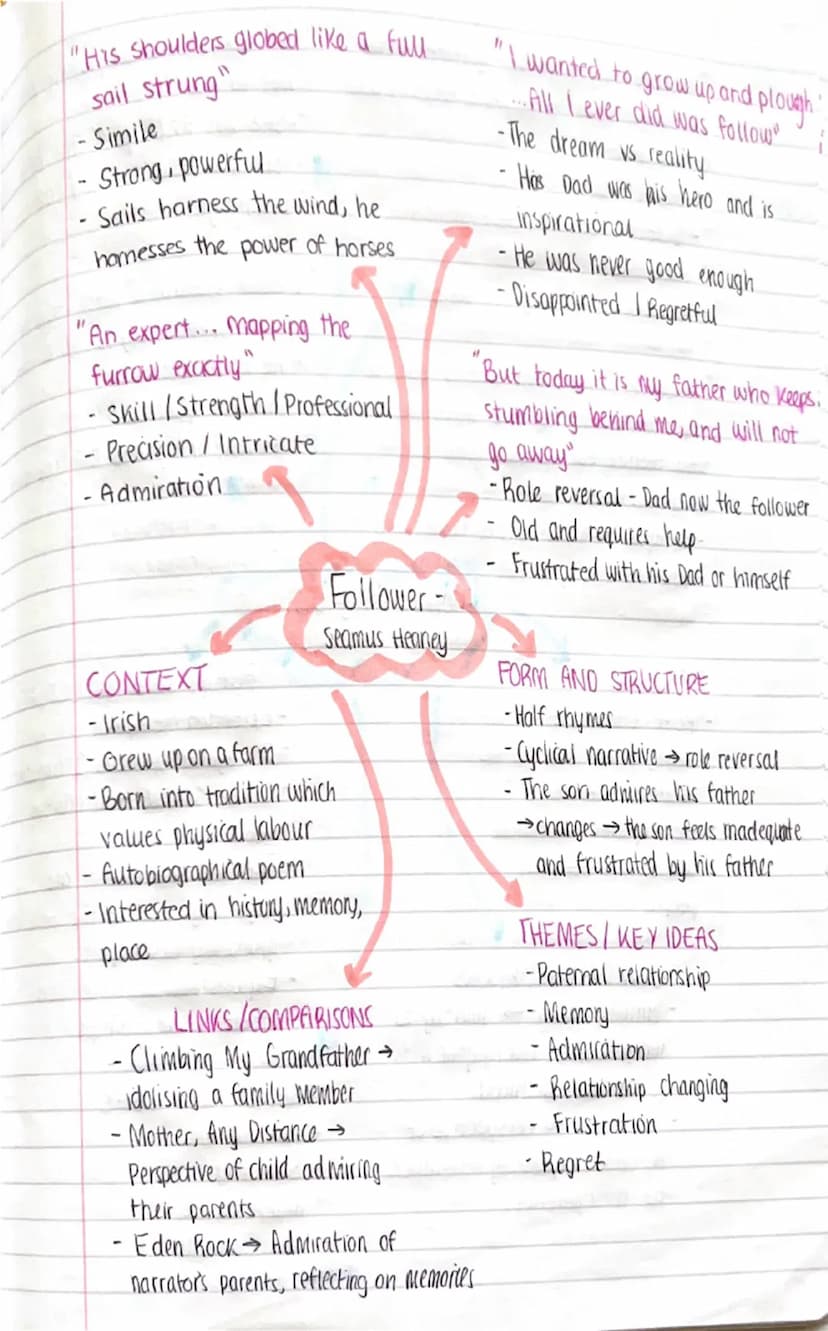 "His shoulders globed like a full
sail strung"
- Simile
- Strong, powerful
- Sails harness the wind, he
harnesses the power of horses
"I wanted to grow up and plough
...All I ever did was follow"
- The dream vs reality
- His Dad was his hero and is
inspirational
- He was never good enough
- Disappointed / Regretful
"An expert... Mapping the
furrow exactly"
- Skill / Strength / Professional
- Precision / Intricate
- Admiration
"But today it is my father who keeps
stumbling behind me, and will not
go away"
- Role reversal - Dad now the follower
- Old and requires help
- Frustrated with his Dad or himself
Follower -
Seamus Heaney
CONTEXT
- Irish
- Grew up on a farm
- Born into tradition which
values physical labour
- Autobiographical poem
- Interested in history, memory,
place
FORM AND STRUCTURE
- Half rhymes
- Cyclical narrative → role reversal
- The son admires his father
→ changes → the son feels inadequate
and frustrated by his father
LINKS / COMPARISONS
- Climbing My Grandfather →
idolising a family member
- Mother, Any Distance →
Perspective of child admiring
their parents
- Eden Rock → Admiration of
narrator's parents, reflecting on memories
THEMES / KEY IDEAS
- Paternal relationship
- Memory
- Admiration
- Relationship changing
- Frustration
- Regret